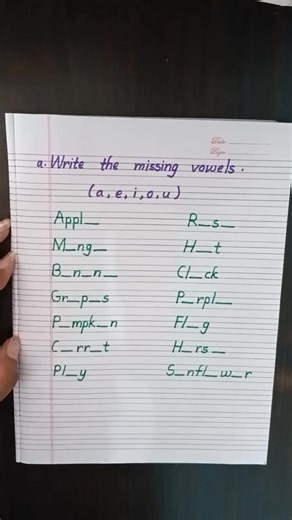 Date
Page
a. Write the missing vowels.
(a, e, i, o, u)
Appl_ R_s_
M_ng_ H_t
B_n_n_ Cl_ck
Gr_p_s P_rpl_
P_mpk_n Fl_g
C_rr_t H_rs_
Pl_y S_nfl_w_r